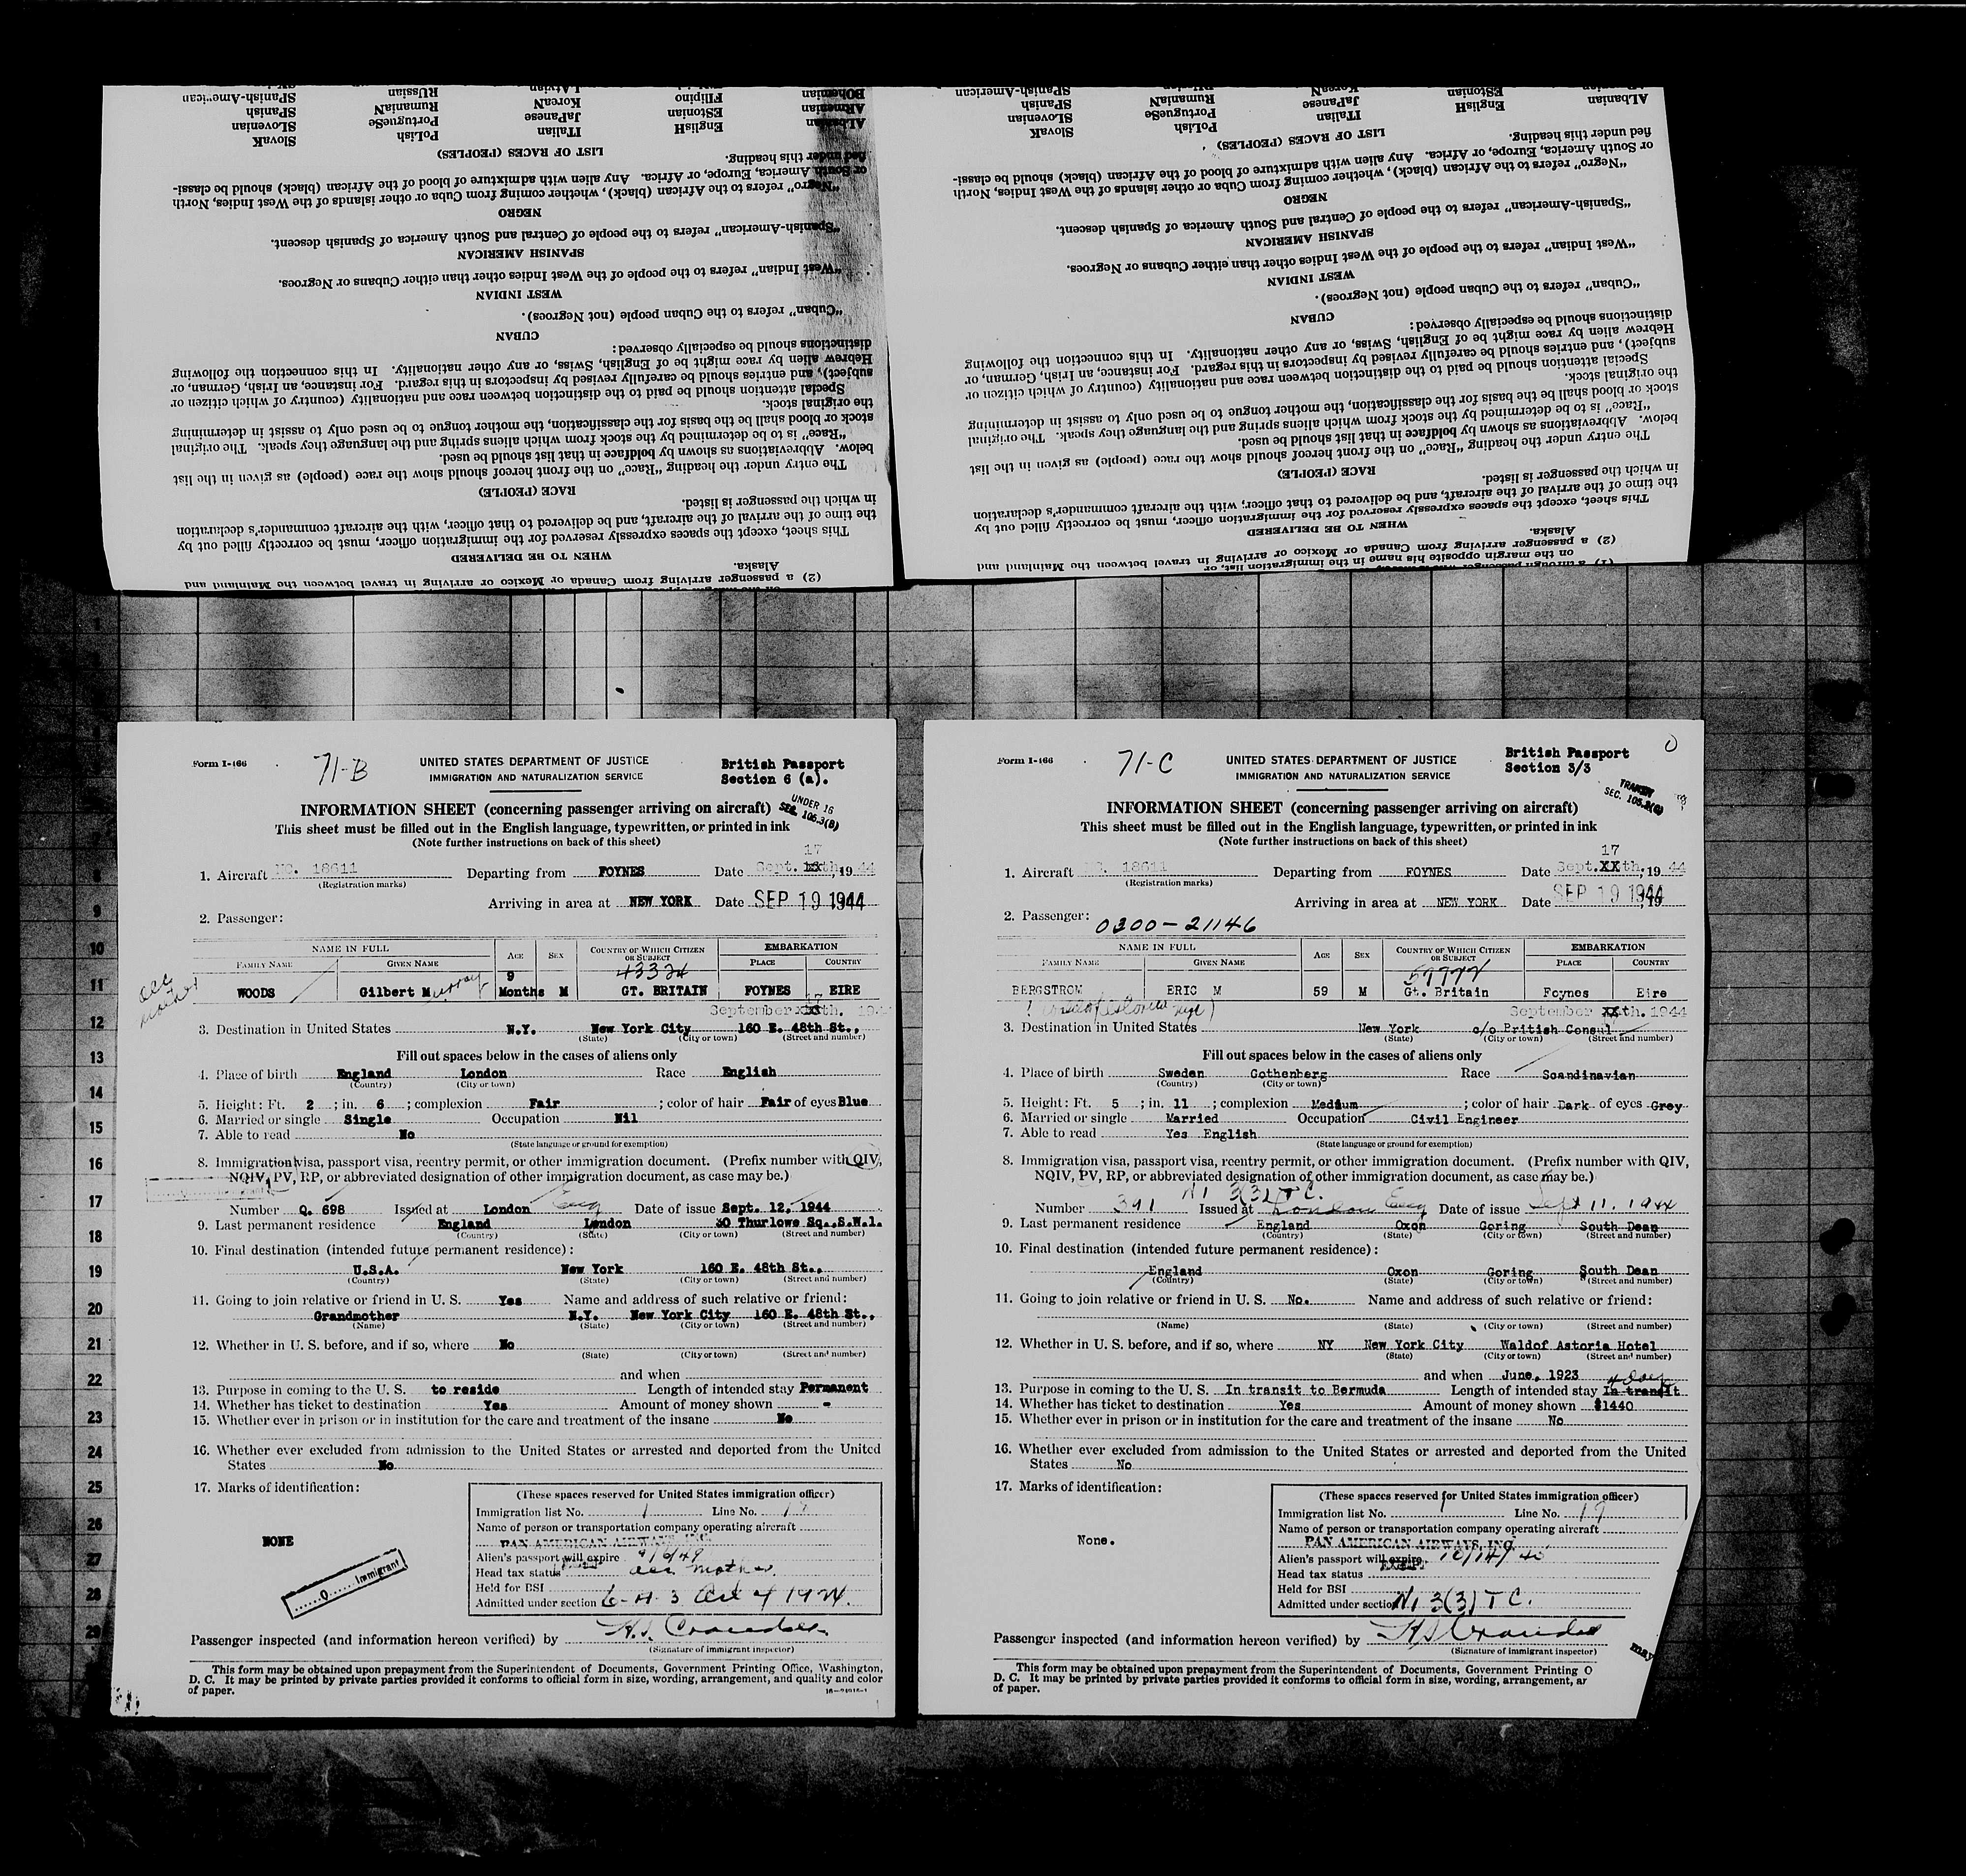 (2) a passenger arriving from Canada or Mexico or arriving in travel between the Mainland and
Alaska.
WHEN TO BE DELIVERED
This sheet, except the spaces expressly reserved for the immigration officer, must be correctly filled out by
the time of the arrival of the aircraft, and be delivered to that officer, with the aircraft commander's declaration
in which the passenger is listed.
RACE (PEOPLE)
The entry under the heading "Race" on the front hereof should show the race (people) as given in the list
below. Abbreviations as shown by boldface in that list should be used.
"Race" is to be determined by the stock from which aliens spring and the language they speak. The original
stock or blood shall be the basis for the classification, the mother tongue to be used only to assist in determining
the original stock.
Special attention should be paid to the distinction between race and nationality (country of which citizen or
subject), and entries should be carefully revised by inspectors in this regard. For instance, an Irish, German, or
Hebrew alien by race might be of English, Swiss, or any other nationality. In this connection the following
distinctions should be especially observed:
CUBAN
"Cuban" refers to the Cuban people (not Negroes).
WEST INDIAN
"West Indian" refers to the people of the West Indies other than either Cubans or Negroes.
SPANISH AMERICAN
"Spanish-American" refers to the people of Central and South America of Spanish descent.
NEGRO
"Negro" refers to the African (black), whether coming from Cuba or other islands of the West Indies, North
or South America, Europe, or Africa. Any alien with admixture of blood of the African (black) should be classi-
fied under this heading.
LIST OF RACES (PEOPLES)
ALbanian EnglisH ITalian PoLish SlovaK
ARmenian EStonian JaPanese PortugueSe SLovenian
BOhemian FIlipino KoreaN RumaniaN SPanish
LAtvian RUssian SPanish-American
(1) a through passenger
on the margin opposite his name in the immigration list, or
(2) a passenger arriving from Canada or Mexico or arriving in travel between the Mainland and
Alaska.
WHEN TO BE DELIVERED
This sheet, except the spaces expressly reserved for the immigration officer, must be correctly filled out by
the time of the arrival of the aircraft, and be delivered to that officer, with the aircraft commander's declaration
in which the passenger is listed.
RACE (PEOPLE)
The entry under the heading "Race" on the front hereof should show the race (people) as given in the list
below. Abbreviations as shown by boldface in that list should be used.
"Race" is to be determined by the stock from which aliens spring and the language they speak. The original
stock or blood shall be the basis for the classification, the mother tongue to be used only to assist in determining
the original stock.
Special attention should be paid to the distinction between race and nationality (country of which citizen or
subject), and entries should be carefully revised by inspectors in this regard. For instance, an Irish, German, or
Hebrew alien by race might be of English, Swiss, or any other nationality. In this connection the following
distinctions should be especially observed:
CUBAN
"Cuban" refers to the Cuban people (not Negroes).
WEST INDIAN
"West Indian" refers to the people of the West Indies other than either Cubans or Negroes.
SPANISH AMERICAN
"Spanish-American" refers to the people of Central and South America of Spanish descent.
NEGRO
"Negro" refers to the African (black), whether coming from Cuba or other islands of the West Indies, North
or South America, Europe, or Africa. Any alien with admixture of blood of the African (black) should be classi-
fied under this heading.
LIST OF RACES (PEOPLES)
ALbanian EnglisH ITalian PoLish SlovaK
EStonian JaPanese PortugueSe SLovenian
KoreaN RumaniaN SPanish
SPanish-American
Form I-466
71-B
UNITED STATES DEPARTMENT OF JUSTICE
IMMIGRATION AND NATURALIZATION SERVICE
British Passport
Section 6 (a).
UNDER 16
SEC. 105.3(B)
INFORMATION SHEET (concerning passenger arriving on aircraft)
This sheet must be filled out in the English language, typewritten, or printed in ink
(Note further instructions on back of this sheet)
17
1. Aircraft NC. 18611 Departing from FOYNES Date Sept. th, 19 44
(Registration marks)
Arriving in area at NEW YORK Date SEP 19 1944
2. Passenger:
NAME IN FULL AGE SEX COUNTRY OF WHICH CITIZEN OR SUBJECT EMBARKATION
FAMILY NAME GIVEN NAME PLACE COUNTRY
43324
WOODS Gilbert Murray 9 Months M GT. BRITAIN FOYNES EIRE
acc mother
September 17 th. 1944
3. Destination in United States N.Y. New York City 160 E. 48th St.,
(State) (City or town) (Street and number)
Fill out spaces below in the cases of aliens only
4. Place of birth England London Race English
(Country) (City or town)
5. Height: Ft. 2 ; in. 6 ; complexion Fair ; color of hair Fair of eyes Blue
6. Married or single Single Occupation Nil
7. Able to read No
(State language or ground for exemption)
8. Immigration visa, passport visa, reentry permit, or other immigration document. (Prefix number with QIV,
NQIV, PV, RP, or abbreviated designation of other immigration document, as case may be.)
Number Q. 698 Issued at London Eng Date of issue Sept. 12, 1944
9. Last permanent residence England London 30 Thurlowe Sq.,S.W.1.
(Country) (State) (City or town) (Street and number)
10. Final destination (intended future permanent residence):
U.S.A. New York 160 E. 48th St.,
(Country) (State) (City or town) (Street and number)
11. Going to join relative or friend in U. S. Yes Name and address of such relative or friend:
Grandmother N.Y. New York City 160 E. 48th St.,
(Name) (State) (City or town) (Street and number)
12. Whether in U. S. before, and if so, where No
(State) (City or town) (Street and number)
and when
13. Purpose in coming to the U. S. to reside Length of intended stay Permanent
14. Whether has ticket to destination Yes Amount of money shown -
15. Whether ever in prison or in institution for the care and treatment of the insane No
16. Whether ever excluded from admission to the United States or arrested and deported from the United
States No
17. Marks of identification:
NONE
0 Immigrant
(These spaces reserved for United States immigration officer)
Immigration list No. 1 Line No.
Name of person or transportation company operating aircraft
PAN AMERICAN AIRWAYS, INC.
Alien's passport will expire 9/6/49
Head tax status acc mother
Held for BSI
Admitted under section 6-A-3 Act of 1924.
Passenger inspected (and information hereon verified) by H.S. Crandall
(Signature of immigrant inspector)
This form may be obtained upon prepayment from the Superintendent of Documents, Government Printing Office, Washington,
D. C. It may be printed by private parties provided it conforms to official form in size, wording, arrangement, and quality and color
of paper.
Form I-466
71-C
UNITED STATES DEPARTMENT OF JUSTICE
IMMIGRATION AND NATURALIZATION SERVICE
British Passport
Section 3/3
TRANSIT
SEC. 105.3(G)
INFORMATION SHEET (concerning passenger arriving on aircraft)
This sheet must be filled out in the English language, typewritten, or printed in ink
(Note further instructions on back of this sheet)
17
1. Aircraft NC. 18611 Departing from FOYNES Date Sept. XXth, 19 44
(Registration marks)
Arriving in area at NEW YORK Date SEP 19 1944, 19
2. Passenger: 0300-21146
NAME IN FULL AGE SEX COUNTRY OF WHICH CITIZEN OR SUBJECT EMBARKATION
FAMILY NAME GIVEN NAME PLACE COUNTRY
BERGSTROM ERIC M 59 M Gt. Britain Foynes Eire
September XXth. 1944
3. Destination in United States New York c/o British Consul
(State) (City or town) (Street and number)
Fill out spaces below in the cases of aliens only
4. Place of birth Sweden Gothenberg Race Scandinavian
(Country) (City or town)
5. Height: Ft. 5 ; in. 11 ; complexion Medium ; color of hair Dark of eyes Grey
6. Married or single Married Occupation Civil Engineer
7. Able to read Yes English
(State language or ground for exemption)
8. Immigration visa, passport visa, reentry permit, or other immigration document. (Prefix number with QIV,
NQIV, PV, RP, or abbreviated designation of other immigration document, as case may be.)
NI 3(3) T.C.
Number 391 Issued at London Eng Date of issue Sept 11. 1944
9. Last permanent residence England Oxon Goring South Dean
(Country) (State) (City or town) (Street and number)
10. Final destination (intended future permanent residence):
England Oxon Goring South Dean
(Country) (State) (City or town) (Street and number)
11. Going to join relative or friend in U. S. No. Name and address of such relative or friend:
(Name) (State) (City or town) (Street and number)
12. Whether in U. S. before, and if so, where NY New York City Waldof Astoria Hotel
(State) (City or town) (Street and number)
and when June, 1923
4 days
13. Purpose in coming to the U. S. In transit to Bermuda Length of intended stay In transit
14. Whether has ticket to destination Yes Amount of money shown $1440
15. Whether ever in prison or in institution for the care and treatment of the insane No
16. Whether ever excluded from admission to the United States or arrested and deported from the United
States No
17. Marks of identification:
None.
(These spaces reserved for United States immigration officer)
Immigration list No. 1 Line No. 19
Name of person or transportation company operating aircraft
PAN AMERICAN AIRWAYS, INC.
Alien's passport will expire 10/14/45
Head tax status EXEMPT
Held for BSI
Admitted under section NI 3(3) T C.
Passenger inspected (and information hereon verified) by H S Crandall
(Signature of immigrant inspector)
may
This form may be obtained upon prepayment from the Superintendent of Documents, Government Printing O
D. C. It may be printed by private parties provided it conforms to official form in size, wording, arrangement, ar
of paper.
8
9
10
11
12
13
14
15
16
17
18
19
20
21
22
23
24
25
26
27
28
29